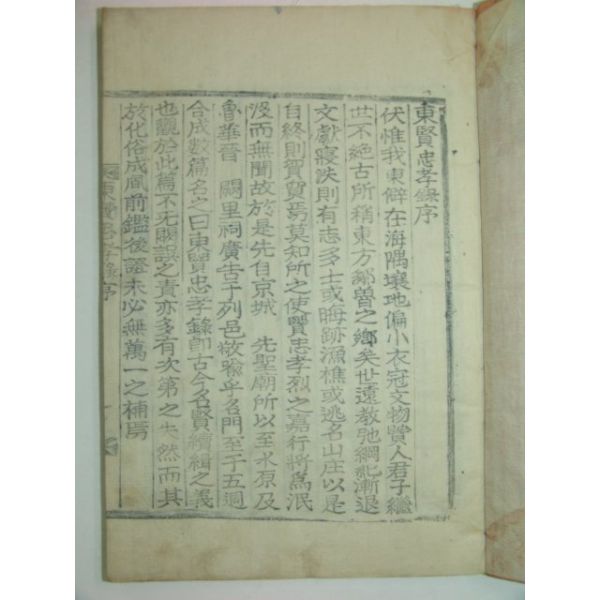 東賢忠孝錄序
伏惟我東僻在海隅壤地偏小衣冠文物賢人君子繼
世不絶古所稱東方鄒魯之鄕矣世遠敎弛綱紀漸退
文獻寢泆則有志多士或晦跡漁樵或逃名山庄以是
自終則賀賀焉莫知所之使賢忠孝烈之嘉行將爲泯
沒而無聞故於是先自京城 先聖廟所以至水原及
魯華晉 闕里祠廣告于列邑敬喩乎名門至于五週
合成數篇名之曰東賢忠孝錄卽古今名賢續緝之義
也觀於此篇不无賜誤之責亦多有次第之失然而其
於化俗成風前鑑後證未必無萬一之補焉
東賢忠孝錄序